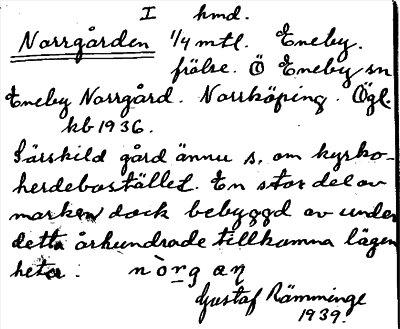 I hmd.
Norrgården 1/4 mtl. Eneby.
frälse. Ö Eneby sn
Eneby Norrgård. Norrköping. Ögl.
kb 1936.
Särskild gård ännu s. om kyrko-
herdebostället. En stor del av
marken dock bebyggd av under
detta århundrade tillkomna lägen
heter. nòrg an
Gustaf Rämminge
1939.